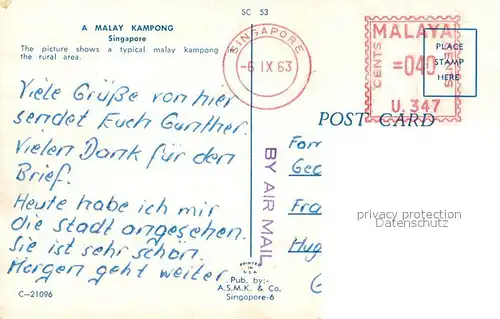 A MALAY KAMPONG
Singapore
The picture shows a typical malay kampong in
the rural area.
SC 53
SINGAPORE
-6 IX 63
MALAYA
CENTS
=040
SEN
U. 347
PLACE
STAMP
HERE
POST CARD
Viele Grüße von hier
sendet Euch Gunther.
Vielen Dank für den
Brief.
Heute habe ich mir
die Stadt angesehen.
Sie ist sehr schön.
Morgen geht weiter.
BY AIR MAIL
Fam
Geo
Fra
Hug
privacy protection
Datenschutz
C-21096
PRINTED IN
U.S.A.
Pub. by:-
A.S.M.K. & Co.
Singapore-6